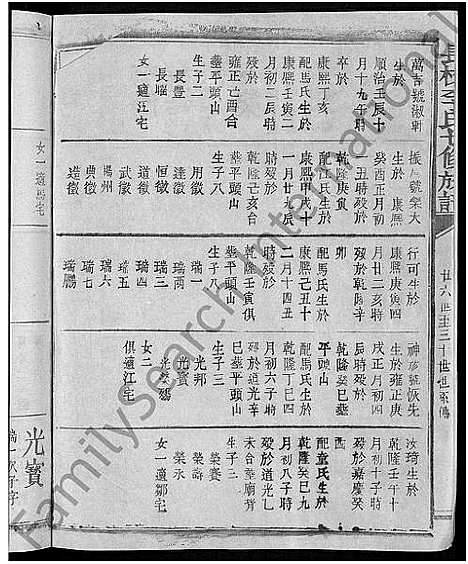 長橋李氏七修族譜
廿六世至三十世系傳
萬吉號淑軒
生於
順治壬辰十
月十九午時
卒於
康熙丁亥
配馬氏生於
康熙壬寅二
月初二辰時
歿於
雍正己酉合
塟平頭山
生子二
長豐
長暉
女一適江宅
振風號樂大
生於 康熙
癸酉正月初
五丑時歿於
乾隆庚寅
配江氏生於
康熙甲戌十
一月廿九辰
時歿於
乾隆己亥合
塟平頭山
生子八
用徵
達徵
恒徵
道徵
武徵
揚州
典徵
造徵
行可生於
康熙庚寅四
月廿二亥時
歿於乾隆辛
卯
配馬氏生於
康熙己丑十
二月十四丑
時歿於
乾隆壬寅俱
塟平頭山
生子八
瑞一
瑞兩
瑞三
瑞四
瑞五
瑞六
瑞七
瑞鵬
神彦號恢先
生於雍正庚
戌正月初四
辰時歿於
乾隆癸巳塟
平頭山
配馬氏生於
乾隆丁巳四
月初六子時
歿於道光辛
巳塟平頭山
生子三
光邦
光寶
光鷄
女二
俱適江宅
汝琦生於
乾隆壬午十
月初十子時
歿於嘉慶癸
酉
配童氏生於
乾隆癸巳九
月初八子時
歿於道光乙
未合塟廟背
生子三
榮賽
榮壽
榮永
女一適鄒宅
女一適馬宅
光寶